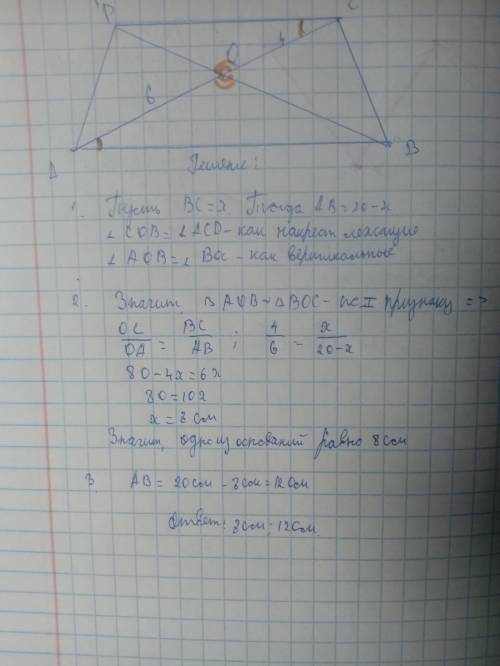 P C
O 4
6
A B
Решение:
1. Пусть BC=x. Тогда AB=20-x
∠COB=∠ACD-как накрест лежащие
∠AOB=∠BOC-как вертикальные
2. Значит △AOB~△BOC- по I признаку =>
OC/OA = BC/AB ; 4/6 = x/20-x
80-4x=6x
80=10x
x=8см
Значит, одно из оснований равно 8см
3. AB= 20см-8см=12см
Ответ: 8см; 12см.